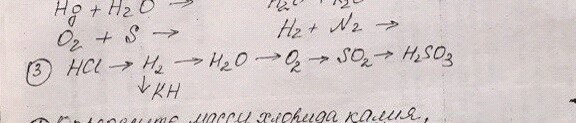 Hg + H2O →
O2 + S → H2 + N2 →
③ HCl → H2 → H2O → O2 → SO2 → H2SO3
↓ KH
массы хлорида калия,